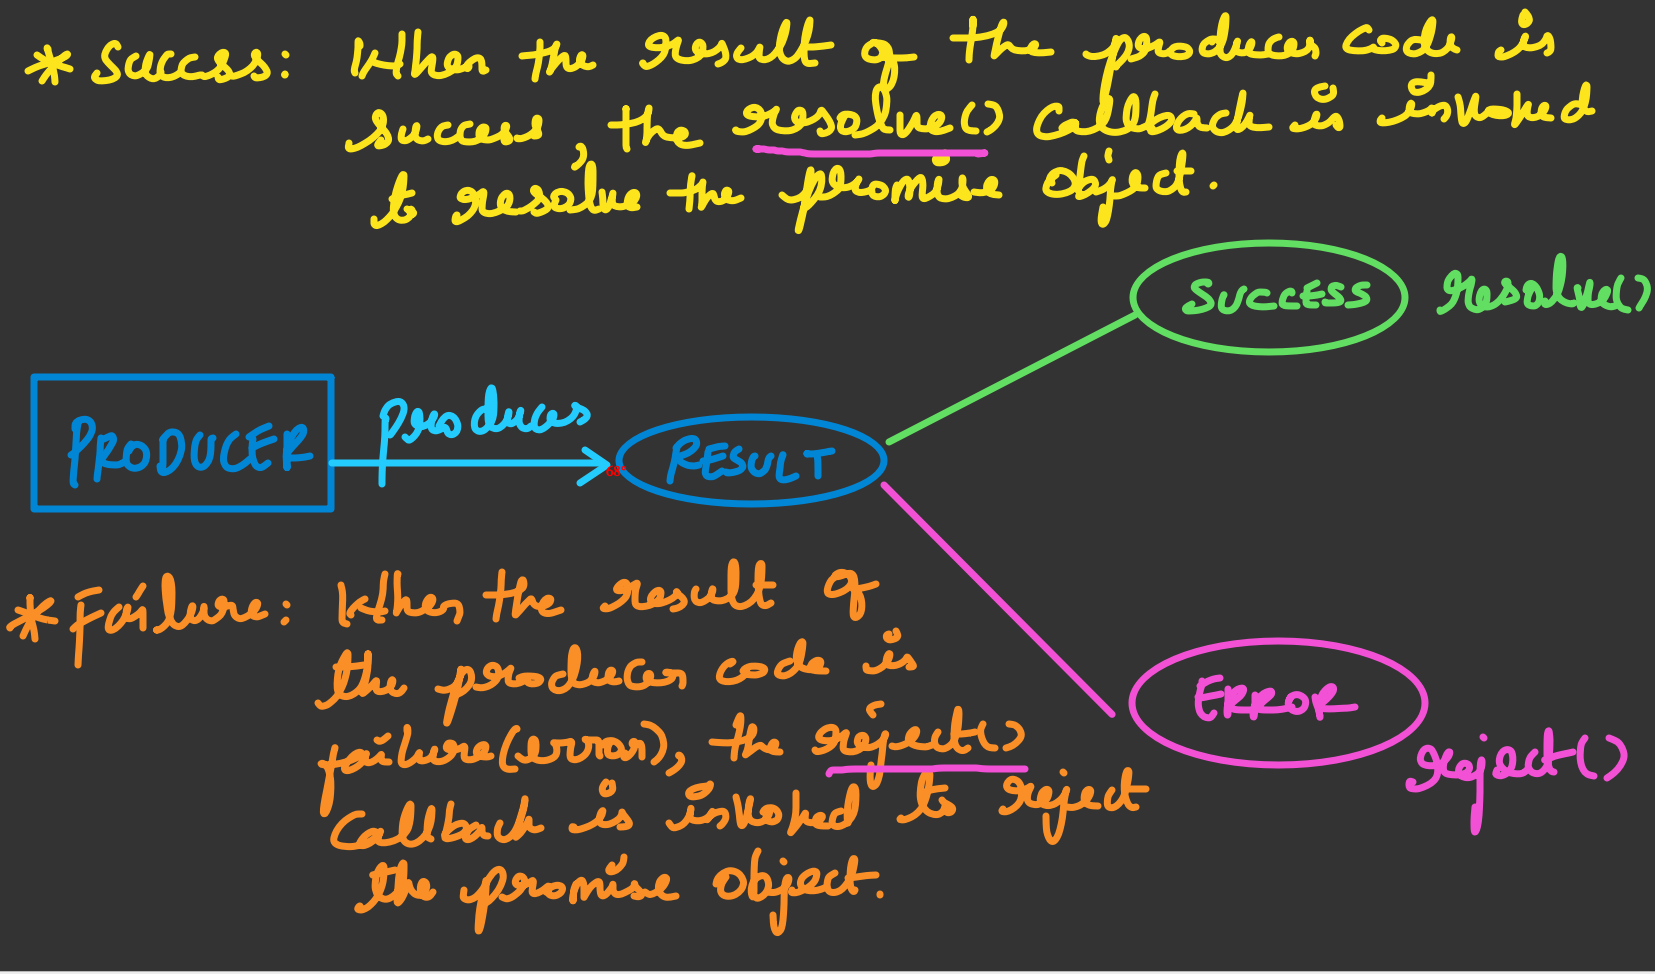 * Success: When the result of the producer code is
success, the resolve() callback is invoked
to resolve the promise object.
SUCCESS resolve()
produces
PRODUCER
RESULT
* Failure: When the result of
the producer code is
failure(error), the reject()
callback is invoked to reject
the promise object.
ERROR
reject()